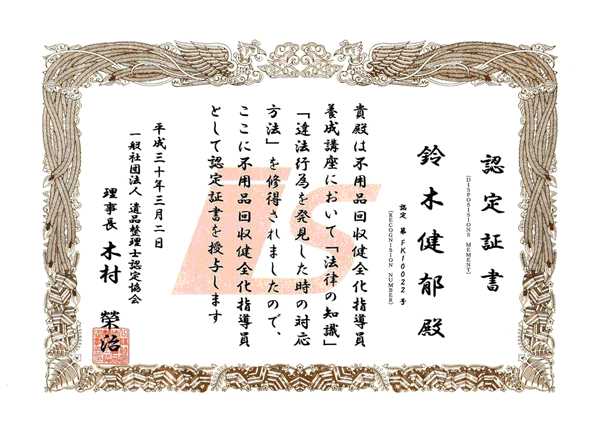 認定証書
(DISPOSISIONS MEMENT)
鈴木健郁殿
認定 第 FK10022 号
(RECOGNISION NUMBER)
貴殿は不用品回収健全化指導員
養成講座において「法律の知識」
「違法行為を発見した時の対応
方法」を修得されましたので、
ここに不用品回収健全化指導員
として認定証書を授与します
平成三十年三月二日
一般社団法人 遺品整理士認定協会
理事長 木村 榮治
IS